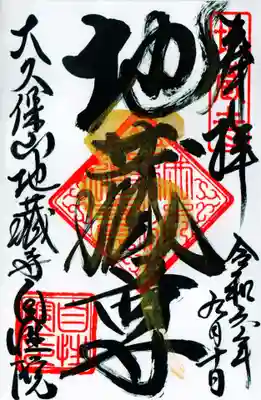 奉拝
令和六年
九月十日
地蔵尊
大久保山地蔵寺自性院
自性